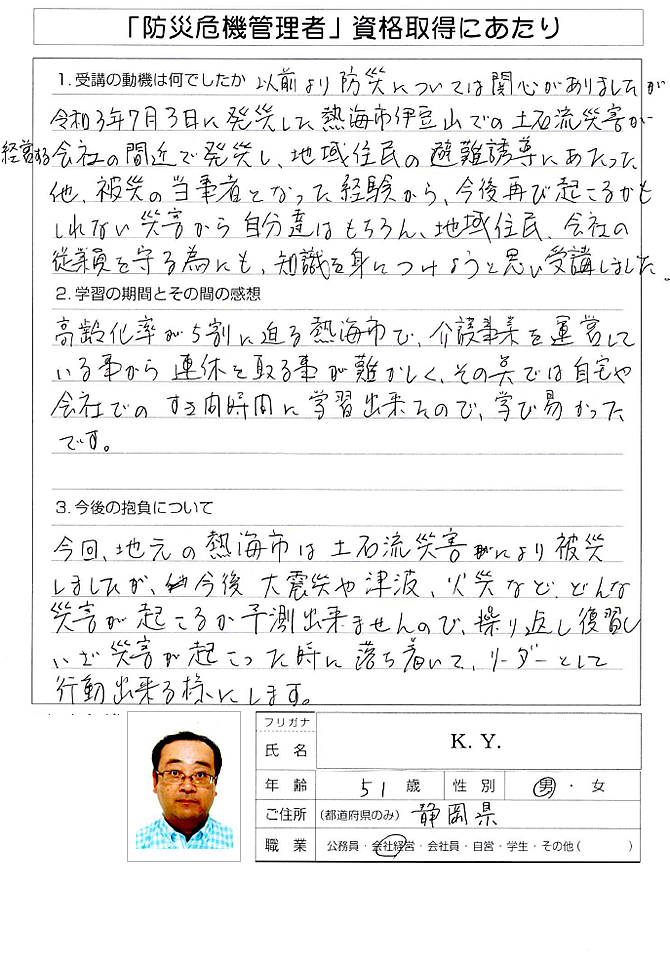 「防災危機管理者」資格取得にあたり
1. 受講の動機は何でしたか 以前より防災については関心がありましたが
令和3年7月3日に発災した熱海市伊豆山での土石流災害が
経営する会社の間近で発災し、地域住民の避難誘導にあたった
他、被災の当事者となった経験から、今後再び起こるかも
しれない災害から自分達はもちろん、地域住民、会社の
従業員を守る為にも、知識を身につけようと思い受講しました。
2. 学習の期間とその間の感想
高齢化率が5割に迫る熱海市で、介護事業を運営して
いる事から連休を取る事が難かしく、その点では自宅や
会社でのすき間時間に学習出来たので、学び易かった
です。
3. 今後の抱負について
今回、地元の熱海市は土石流災害により被災
しましたが、今後大震災や津波、火災など、どんな
災害が起こるか予測出来ませんので、繰り返し復習し
いざ災害が起こった時に落ち着いて、リーダーとして
行動出来る様にします。
フリガナ
氏名 K. Y.
年齢 51歳 性別 男・女
ご住所 (都道府県のみ) 静岡県
職業 公務員・会社経営・会社員・自営・学生・その他( )